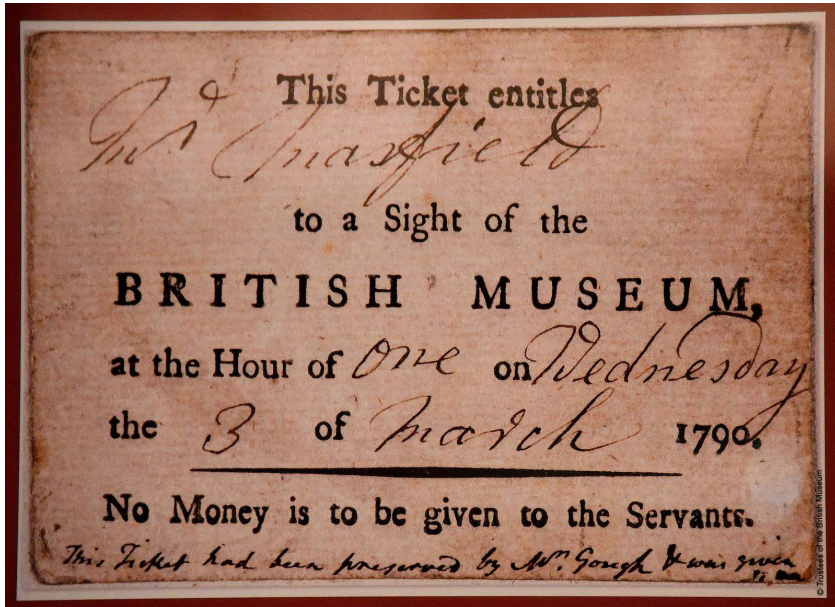 This Ticket entitles
to a Sight of the
BRITISH MUSEUM,
at the Hour of one on Wednesday
the 3 of March 1790.
No Money is to be given to the Servants.
This Ticket had been preserved by Mr. Gough & was given
© Trustees of the British Museum